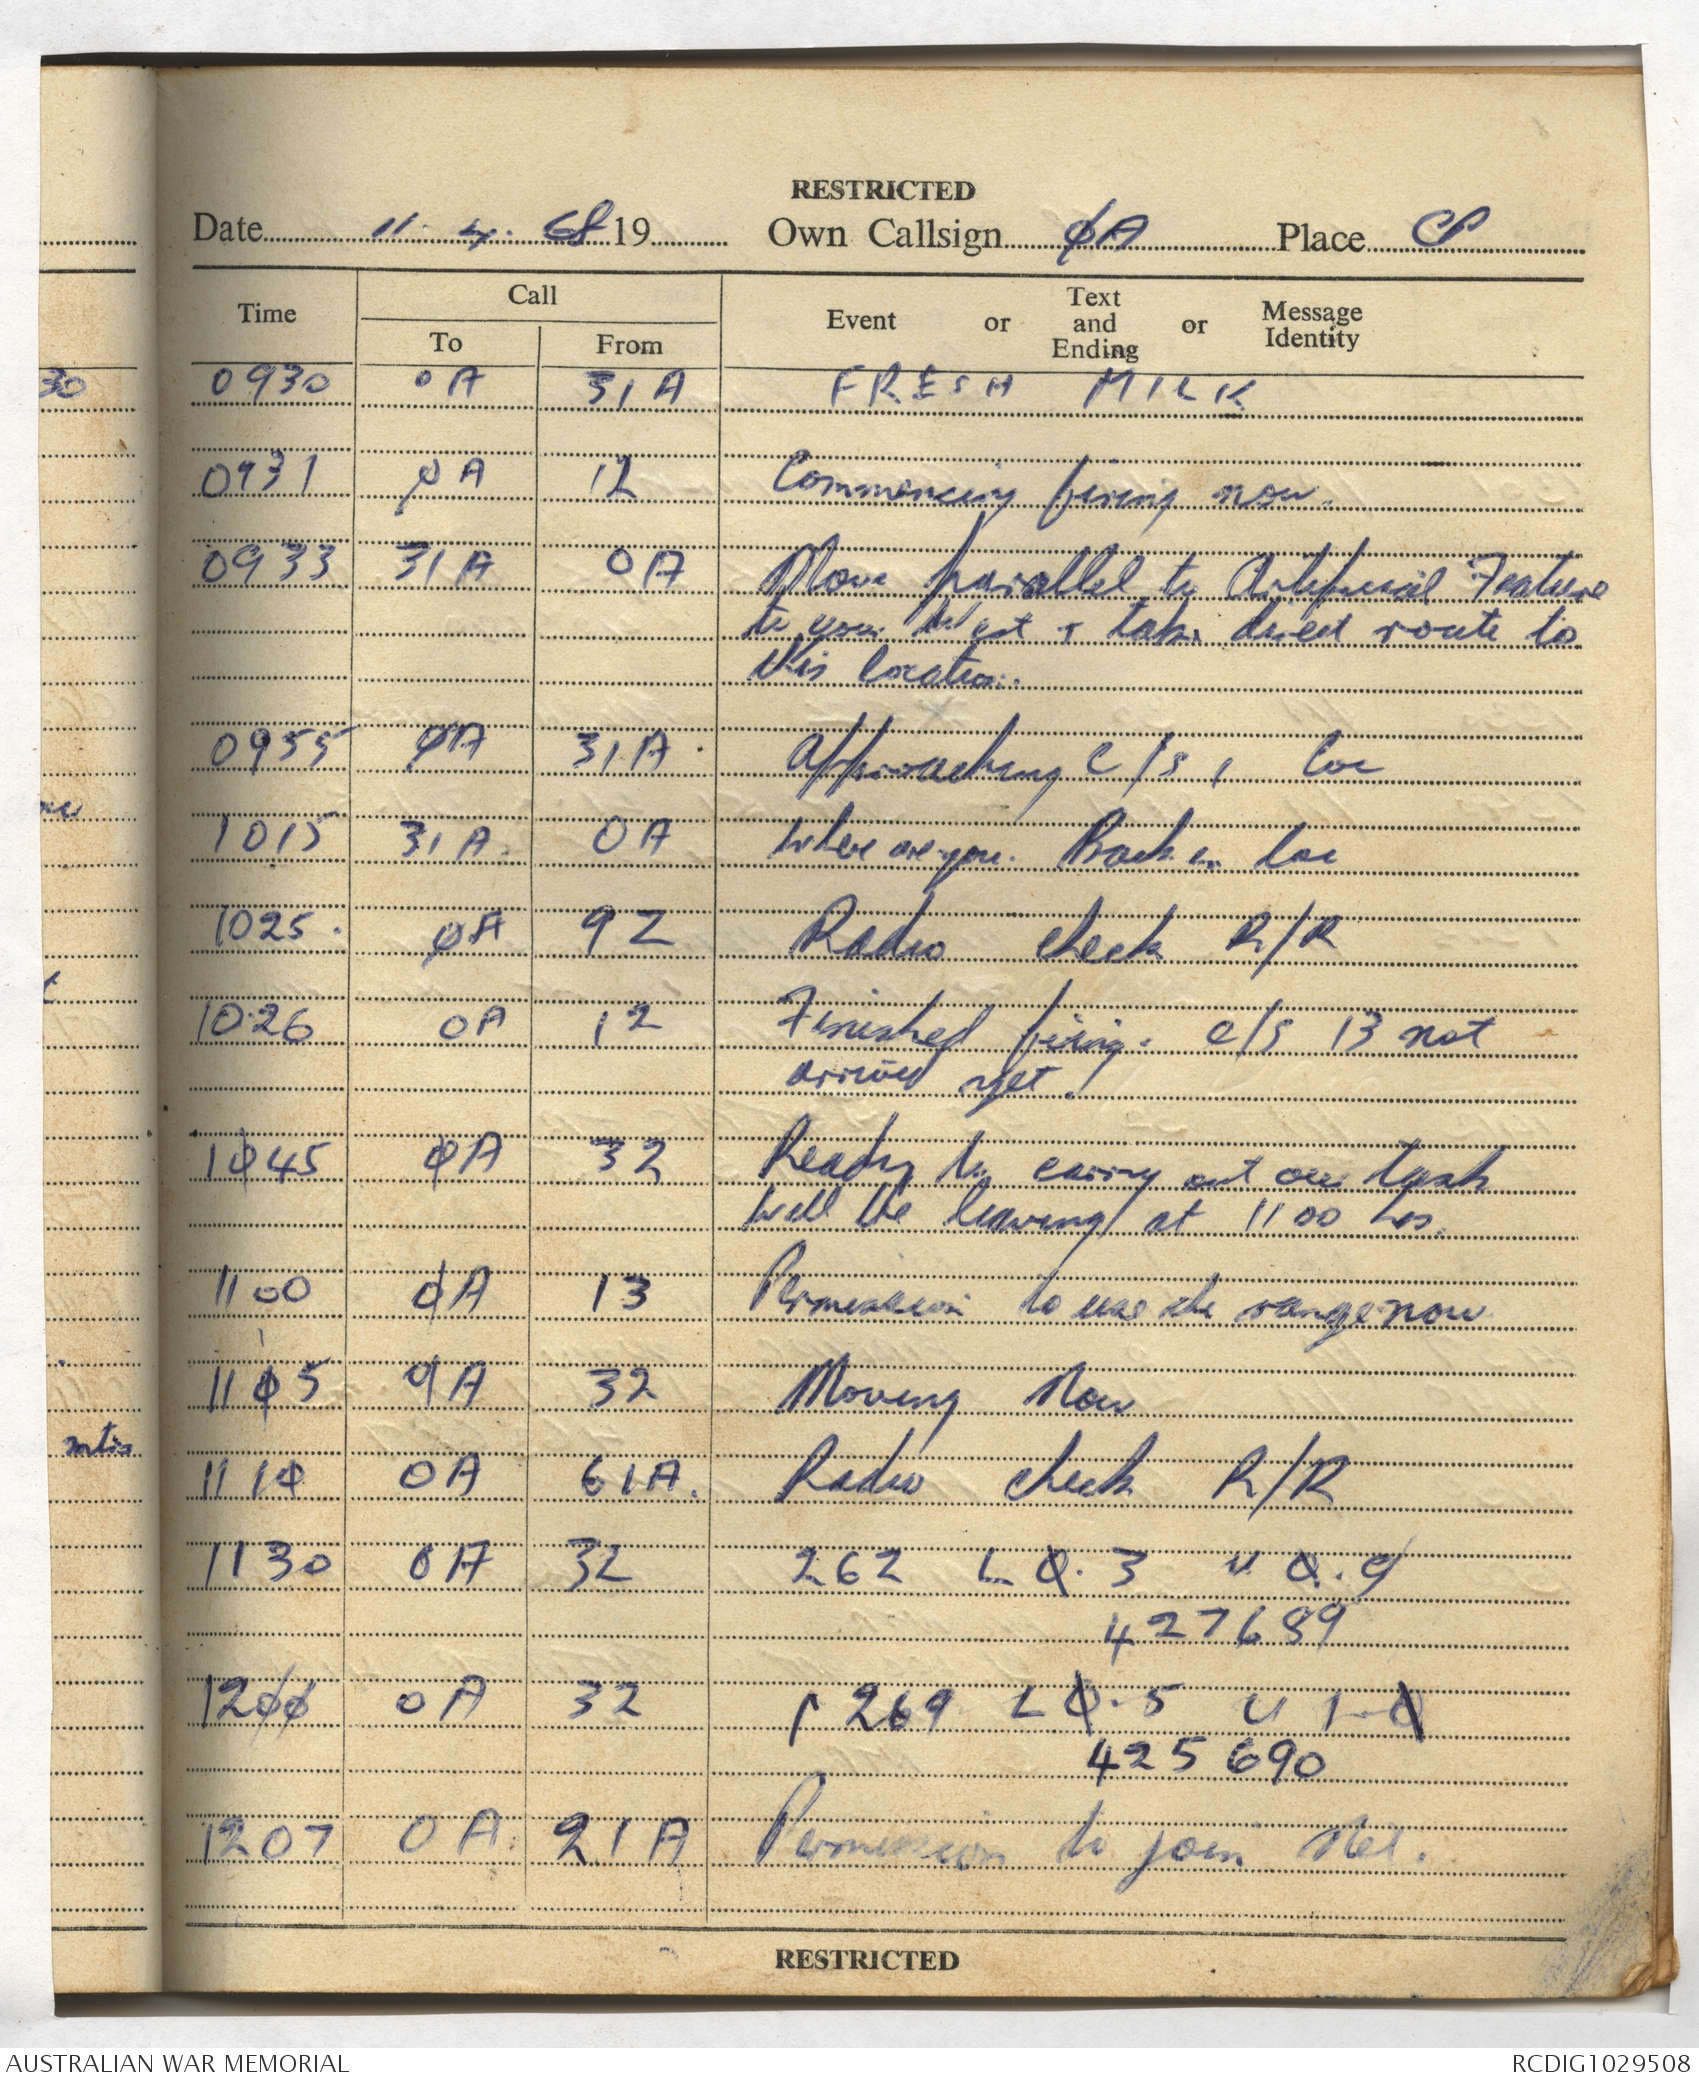 RESTRICTED
Date 11. 4. 68 19 Own Callsign ØA Place CP
Time Call Event or Text and Ending or Message Identity
To From
0930 0A 31A FRESH MILK
30
0931 ØA 12 Commencing firing now.
0933 31A 0A Move parallel to Artificial Feature
to your West + take direct route to
this location.
0955 ØA 31A. Approaching C/S 1 loc
1015 31A. 0A Where are you. Back in loc
1025. ØA 9Z Radio check R/R
1026 0A 12 Finished firing. C/S 13 not
arrived yet.
1Ø45 ØA 32 Ready to carry out our task
Will be leaving at 1100 hrs.
1100 ØA 13 Permission to use the range now
11Ø5 ØA 32 Moving Now
mtis
111Ø 0A 61A. Radio check R/R
1130 0A 32 262 L Ø.3 U Ø.9
427689
12ØØ 0A 32 269 L Ø.5 U 1.Ø
425690
1207 0A. 21A Permission to join Net.
RESTRICTED
AUSTRALIAN WAR MEMORIAL RCDIG1029508